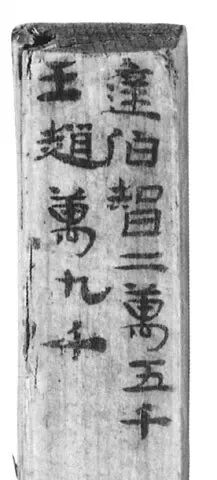 達伯智二萬五千
王趙萬九千